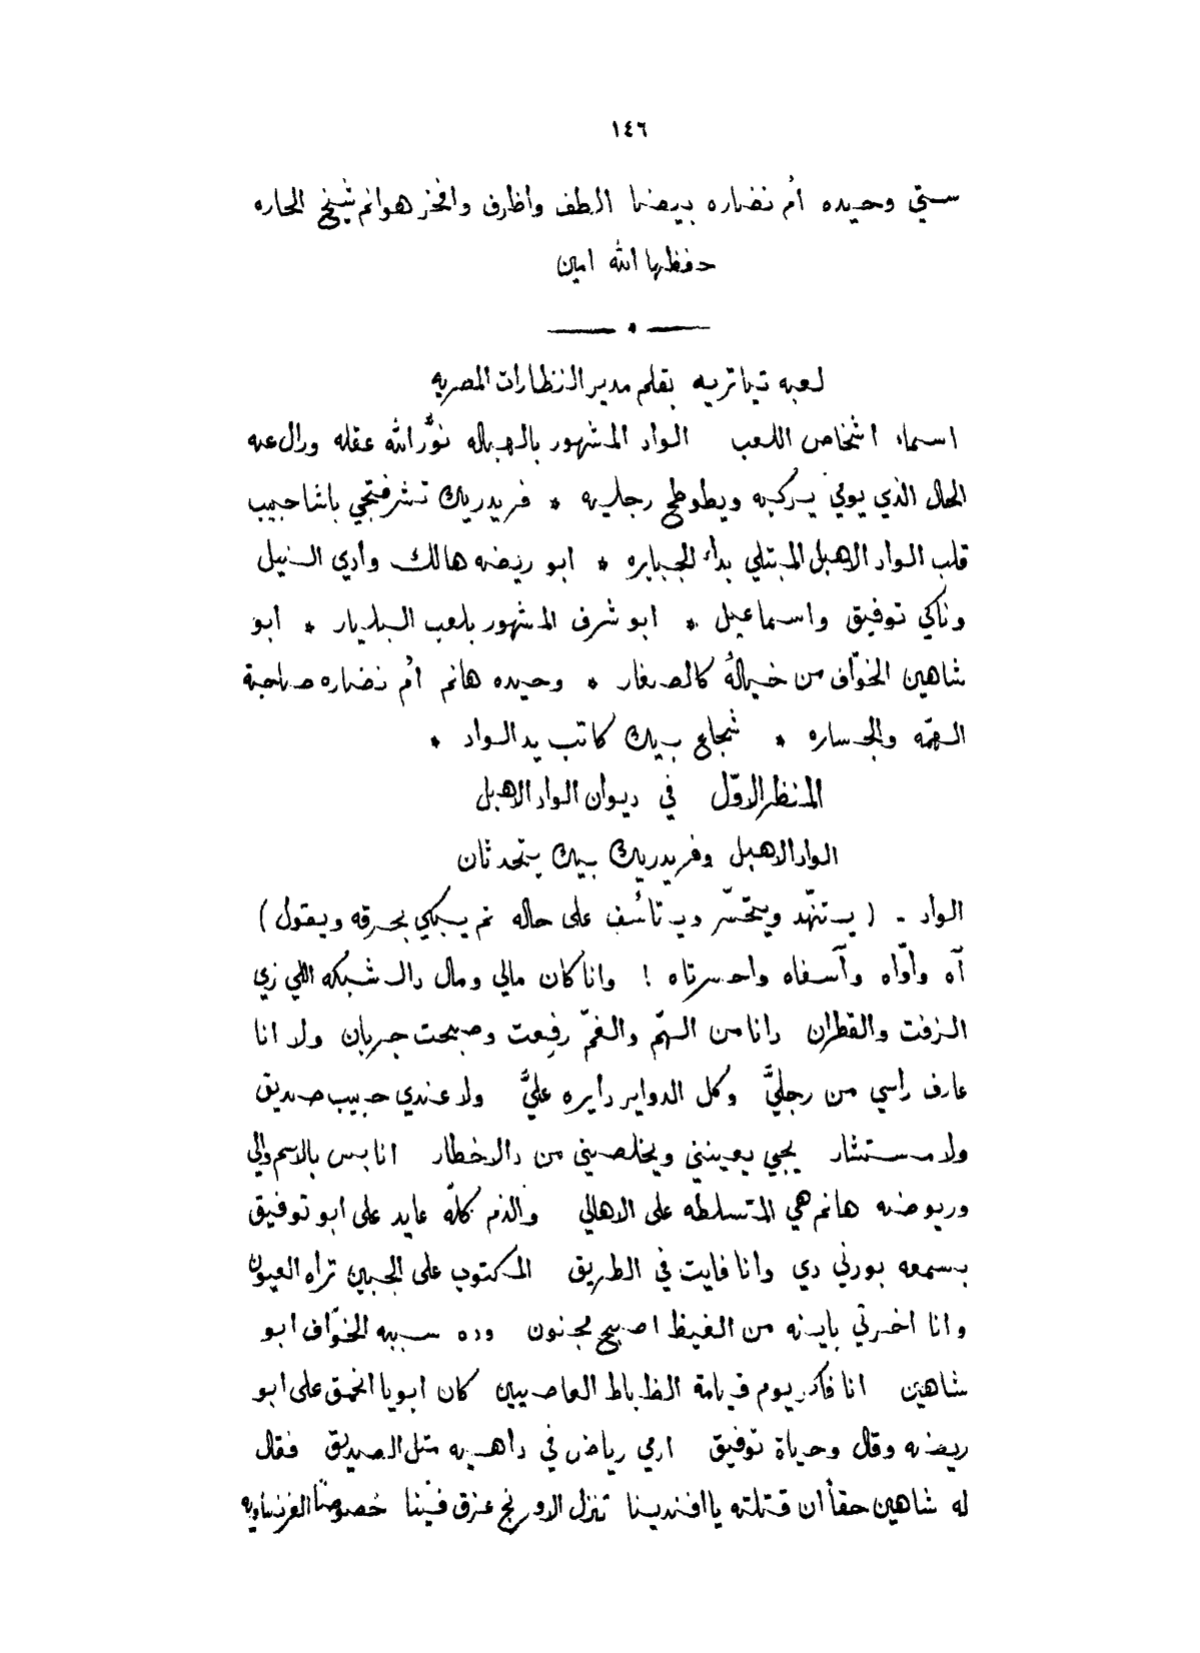 ١٤٦
ستي وحيده أم نضاره بيضا الطف واظرف وافخر هوانم شيخ الحاره
حفظها الله امين
لعبه تياتريه بقلم مدير النظارات المصريه
اسماء اشخاص اللعب الواد المشهور بالهباله نوّر الله عقله وزال عنه
الحال الذي يومي يركبه ويطوطح رجليه * فريدريك تشرفتجي باشا حبيب
قلب الواد الاهبل المبتلي بداء الجبابره * ابو ريضه هالك وادي النيل
وناكي توفيق واسماعيل * ابو شرف المشهور بلعب البلديار * ابو
شاهين الخوّاف من خياله كالصغار * وحيده هانم أم نضاره صاحبة
الهمّه والجساره * شجاع بيك كاتب يد الواد *
المنظر الاوّل في ديوان الواد الاهبل
الواد الاهبل وفريدريك بيك يتحدثان
الواد - (يستنهّد ويتحسّر ويتأسّف على حاله ثم يبكي بحرقه ويقول)
آه وأوّاه وآسفاه واحسرتاه ! وانا كان مالي ومال دال شبكه اللي زي
الزفت والقطران دانا من الهمّ والغمّ رفيعت وصبحت جربان ولا انا
عارف راسي من رجليَّ وكل الدواير دايره عليَّ ولا عندي حبيب صديق
ولا مستشار يجي يعينني ويخلصيني من دالاخطار انا بس بالاسم والي
وريوضه هانم هي المتسلطه على الاهالي والذم كلّه عايد على ابو توفيق
بسمعه بودني دي وانا فايت في الطريق المكتوب على الجبين تراه العيون
وانا اخرتي باينه من الغيظ اصبح مجنون وده سببه الخوّاف ابو
شاهين انا فاكر يوم قيامة الظباط العاصيين كان ابويا انحمق على ابو
ريضه وقال وحياة توفيق ارمي رياض في داهيه متل الصديق فقال
له شاهين حقا ان قتلته يا افندينا تنزل الاورنج عزق فينا خصوصًا الفرنساويه